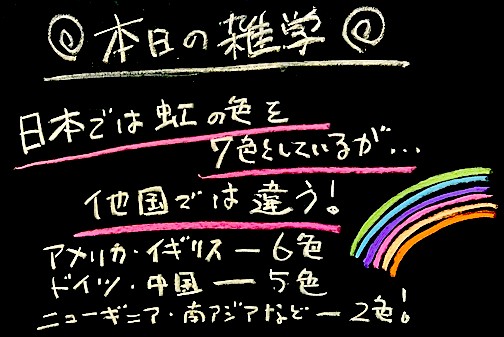 ◎ 本日の雑学 ◎
日本では虹の色を
7色としているが...
他国では違う!
アメリカ・イギリス ー 6色
ドイツ・中国 ー 5色
ニューギニア・南アジアなど ー 2色!